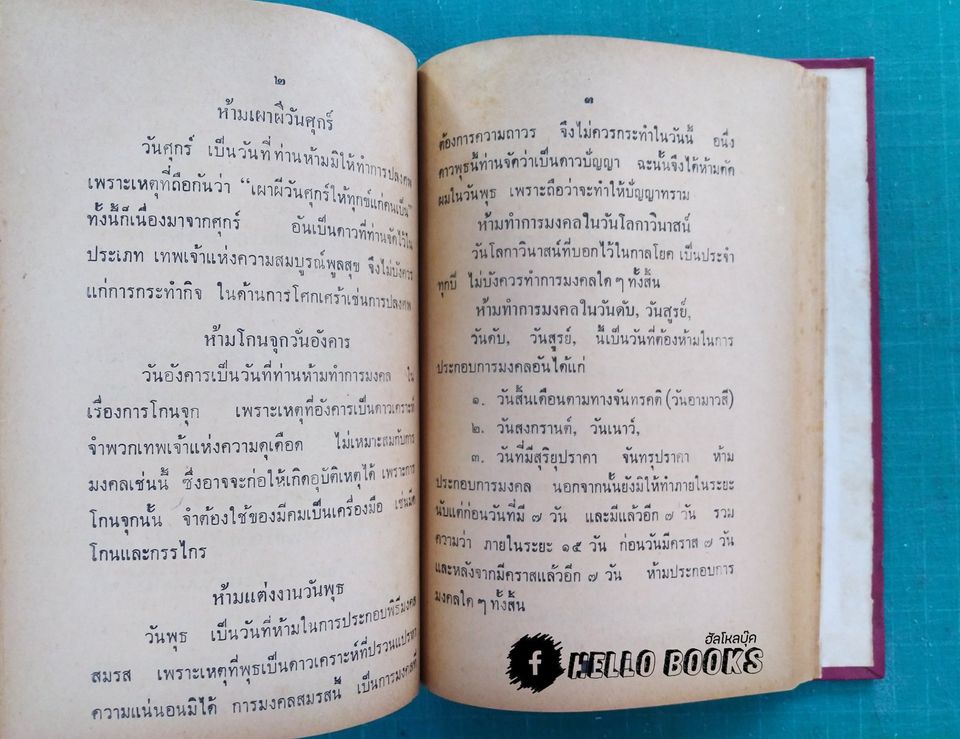 ๒
ห้ามเผาผีวันศุกร์
วันศุกร์ เป็นวันที่ท่านห้ามมิให้ทำการปลงศพ
เพราะเหตุที่ถือกันว่า “เผาผีวันศุกร์ให้ทุกข์แก่คนเป็น”
ทั้งนี้ก็เนื่องมาจากศุกร์ อันเป็นดาวที่ท่านจัดไว้ใน
ประเภท เทพเจ้าแห่งความสมบูรณ์พูลสุข จึงไม่บังควร
แก่การกระทำกิจ ในด้านการโศกเศร้าเช่นการปลงศพ
ห้ามโกนจุกวันอังคาร
วันอังคารเป็นวันที่ท่านห้ามทำการมงคล ใน
เรื่องการโกนจุก เพราะเหตุที่อังคารเป็นดาวเคราะห์
จำพวกเทพเจ้าแห่งความดุเดือด ไม่เหมาะสมกับการ
มงคลเช่นนี้ ซึ่งอาจจะก่อให้เกิดอุบัติเหตุได้ เพราะการ
โกนจุกนั้น จำต้องใช้ของมีคมเป็นเครื่องมือ เช่นมีด
โกนและกรรไกร
ห้ามแต่งงานวันพุธ
วันพุธ เป็นวันที่ห้ามในการประกอบพิธีมงคล
สมรส เพราะเหตุที่พุธเป็นดาวเคราะห์ที่ปรวนแปรหา
ความแน่นอนมิได้ การมงคลสมรสนี้ เป็นการมงคลที่
๓
ต้องการความถาวร จึงไม่ควรกระทำในวันนี้ อนึ่ง
ดาวพุธนี้ท่านจัดว่าเป็นดาวปัญญา ฉะนั้นจึงได้ห้ามตัด
ผมในวันพุธ เพราะถือว่าจะทำให้ปัญญาทราม
ห้ามทำการมงคลในวันโลกาวินาสน์
วันโลกาวินาสน์ที่บอกไว้ในกาลโยค เป็นประจำ
ทุกปี ไม่บังควรทำการมงคลใด ๆ ทั้งสิ้น
ห้ามทำการมงคลในวันดับ, วันสูรย์,
วันดับ, วันสูรย์, นี้เป็นวันที่ต้องห้ามในการ
ประกอบการมงคลอันได้แก่
๑. วันสิ้นเดือนตามทางจันทรคติ (วันอามาวสี)
๒. วันสงกรานต์, วันเนาว์,
๓. วันที่มีสุริยุปราคา จันทรุปราคา ห้าม
ประกอบการมงคล นอกจากนั้นยังมิให้ทำภายในระยะ
นับแต่ก่อนวันที่มี ๗ วัน และมีแล้วอีก ๗ วัน รวม
ความว่า ภายในระยะ ๑๕ วัน ก่อนวันมีคราส ๗ วัน
และหลังจากมีคราสแล้วอีก ๗ วัน ห้ามประกอบการ
มงคลใด ๆ ทั้งสิ้น
ฮัลโหลบุ๊ค
f HELLO BOOKS